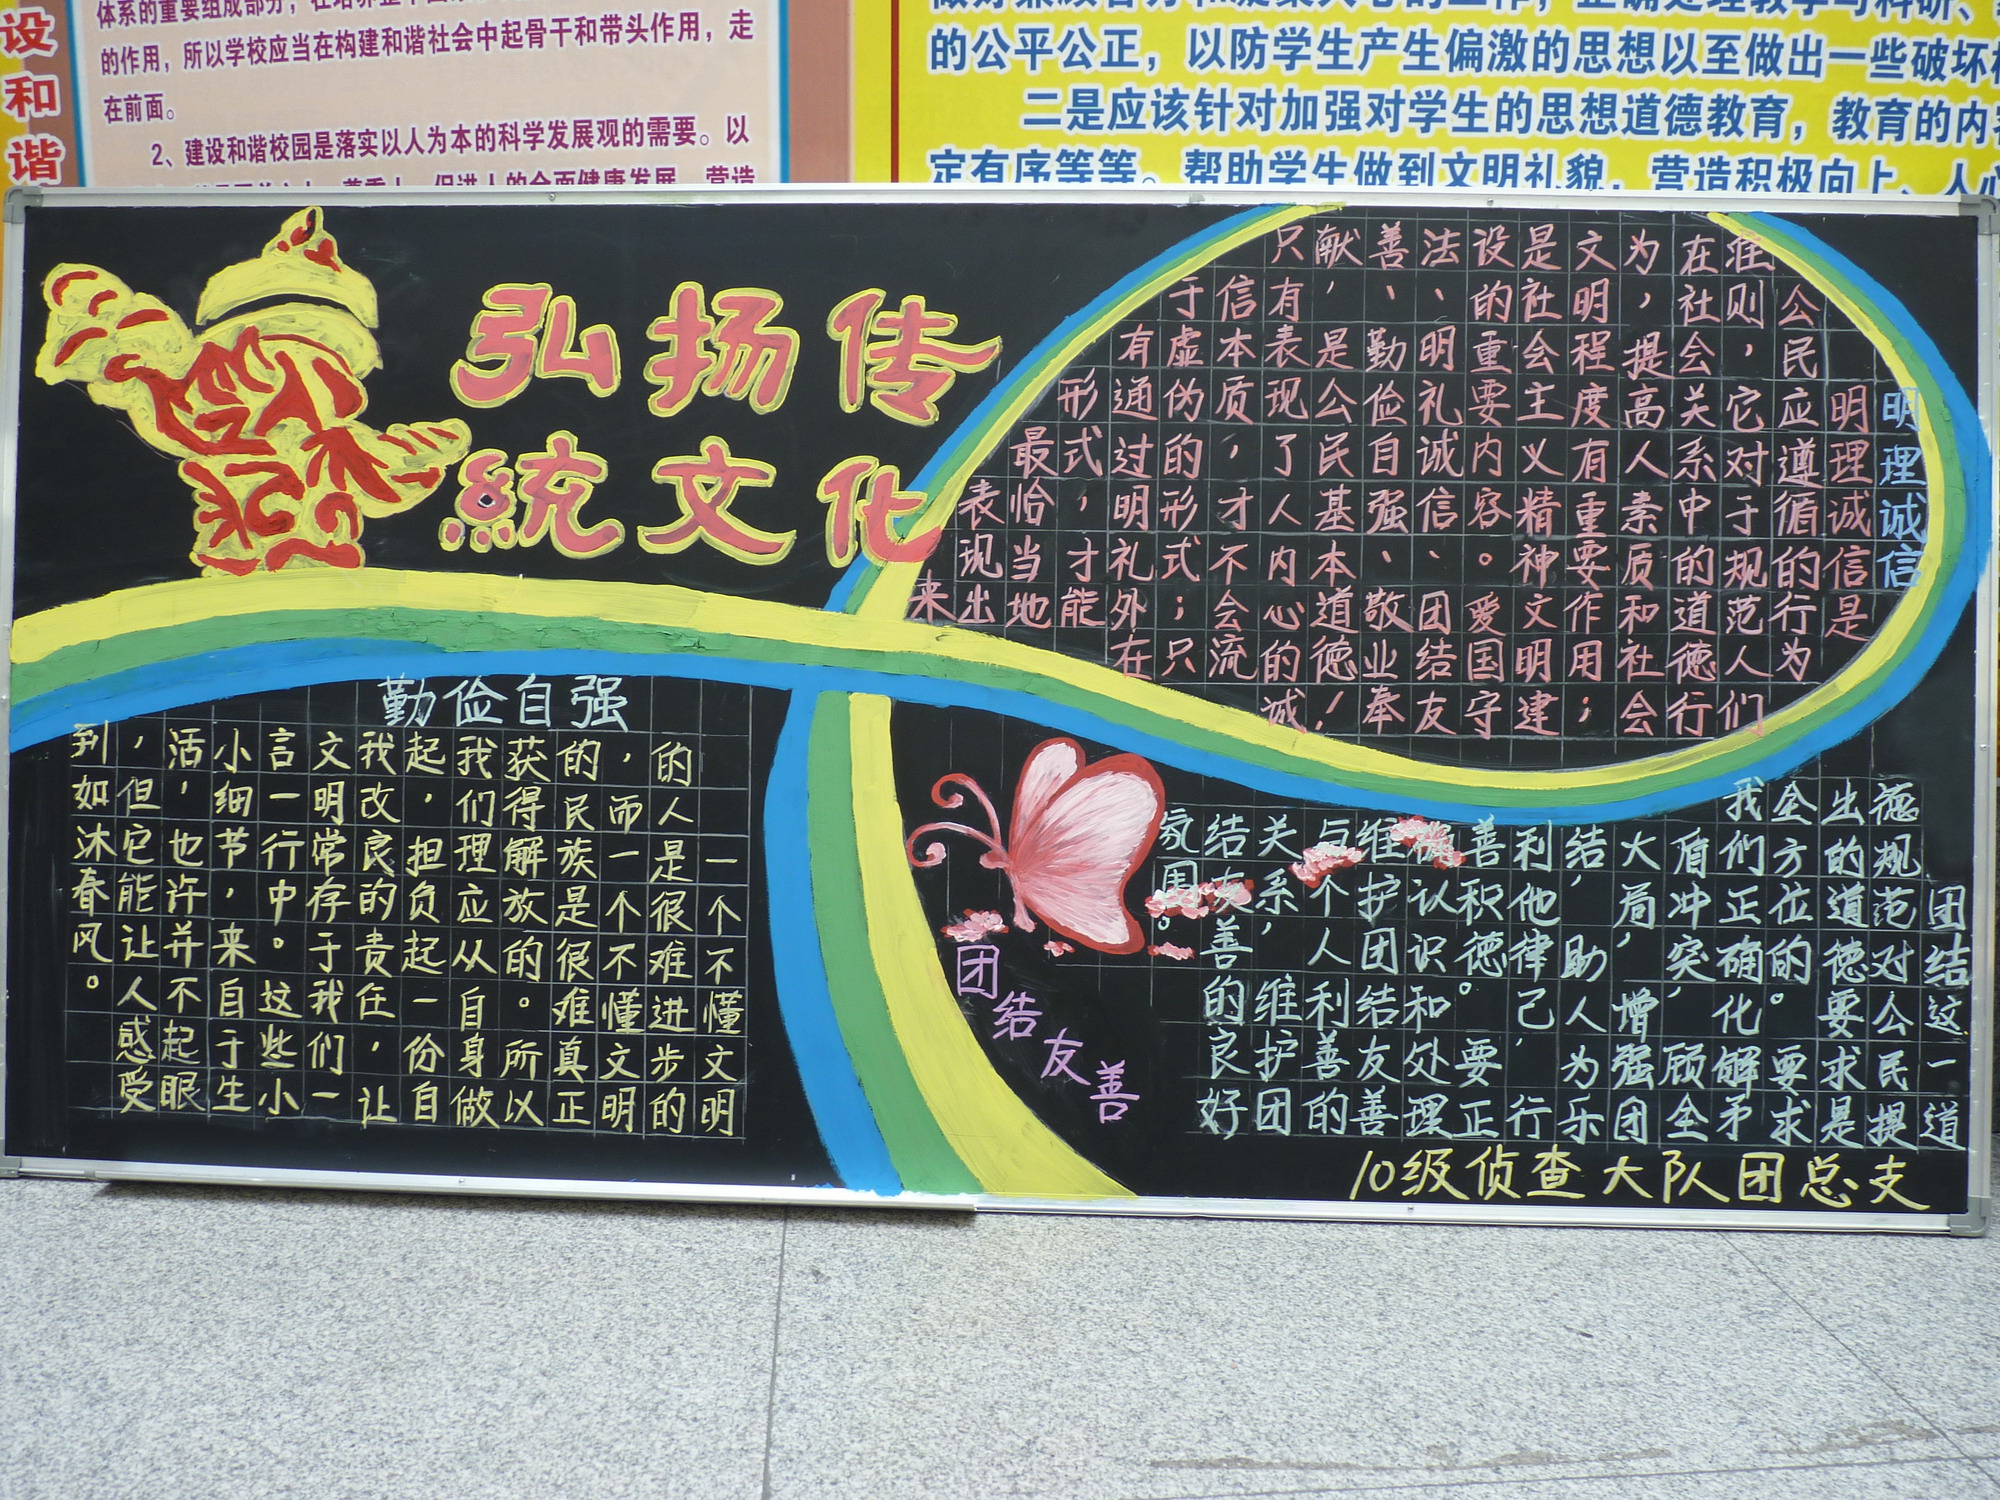 设和谐
的作用，所以学校应当在构建和谐社会中起骨干和带头作用，走
在前面。
2、建设和谐校园是落实以人为本的科学发展观的需要。以
的公平公正，以防学生产生偏激的思想以至做出一些破坏
二是应该针对加强对学生的思想道德教育，教育的内容
定有序等等。帮助学生做到文明礼貌，营造积极向上、人心
弘扬传
统文化
明理诚信
明理诚信是
公民应遵循的行为
准则，它对于规范人们
在社会关系中的道德行
为，提高人素质和社会
文明程度有重要作用；
是社会主义精神文明建
设的重要内容。爱国守
法、明礼诚信、团结友
善、勤俭自强、敬业奉
献，是公民基本道德！
只有表现了人内心的诚
信本质，才不会流
于虚伪的形式；只
有通过明礼外在
形式，才能
最恰当地
表现出
来
勤俭自强
一个不懂文明
的人是很难进步的
，而一个不懂文明
的民族是很难真正
获得解放的。所以
我们理应从自身做
起，担负起一份自
我改良的责任，让
文明常存于我们一
言一行中。这些小
小细节，来自于生
活，也许并不起眼
，但它能让人感受
到如沐春风。
团结友善
团结这一道
德规范对公民提
出的道德要求是
全方位的。要求
我们正确化解矛
盾冲突，顾全
大局，增强团
结，助人为乐
利他律己，行
善积德。要正
确认识和处理
维护团结友善
与个人利善的
关系，维护团
结友善的良好
氛围。
10级侦查大队团总支